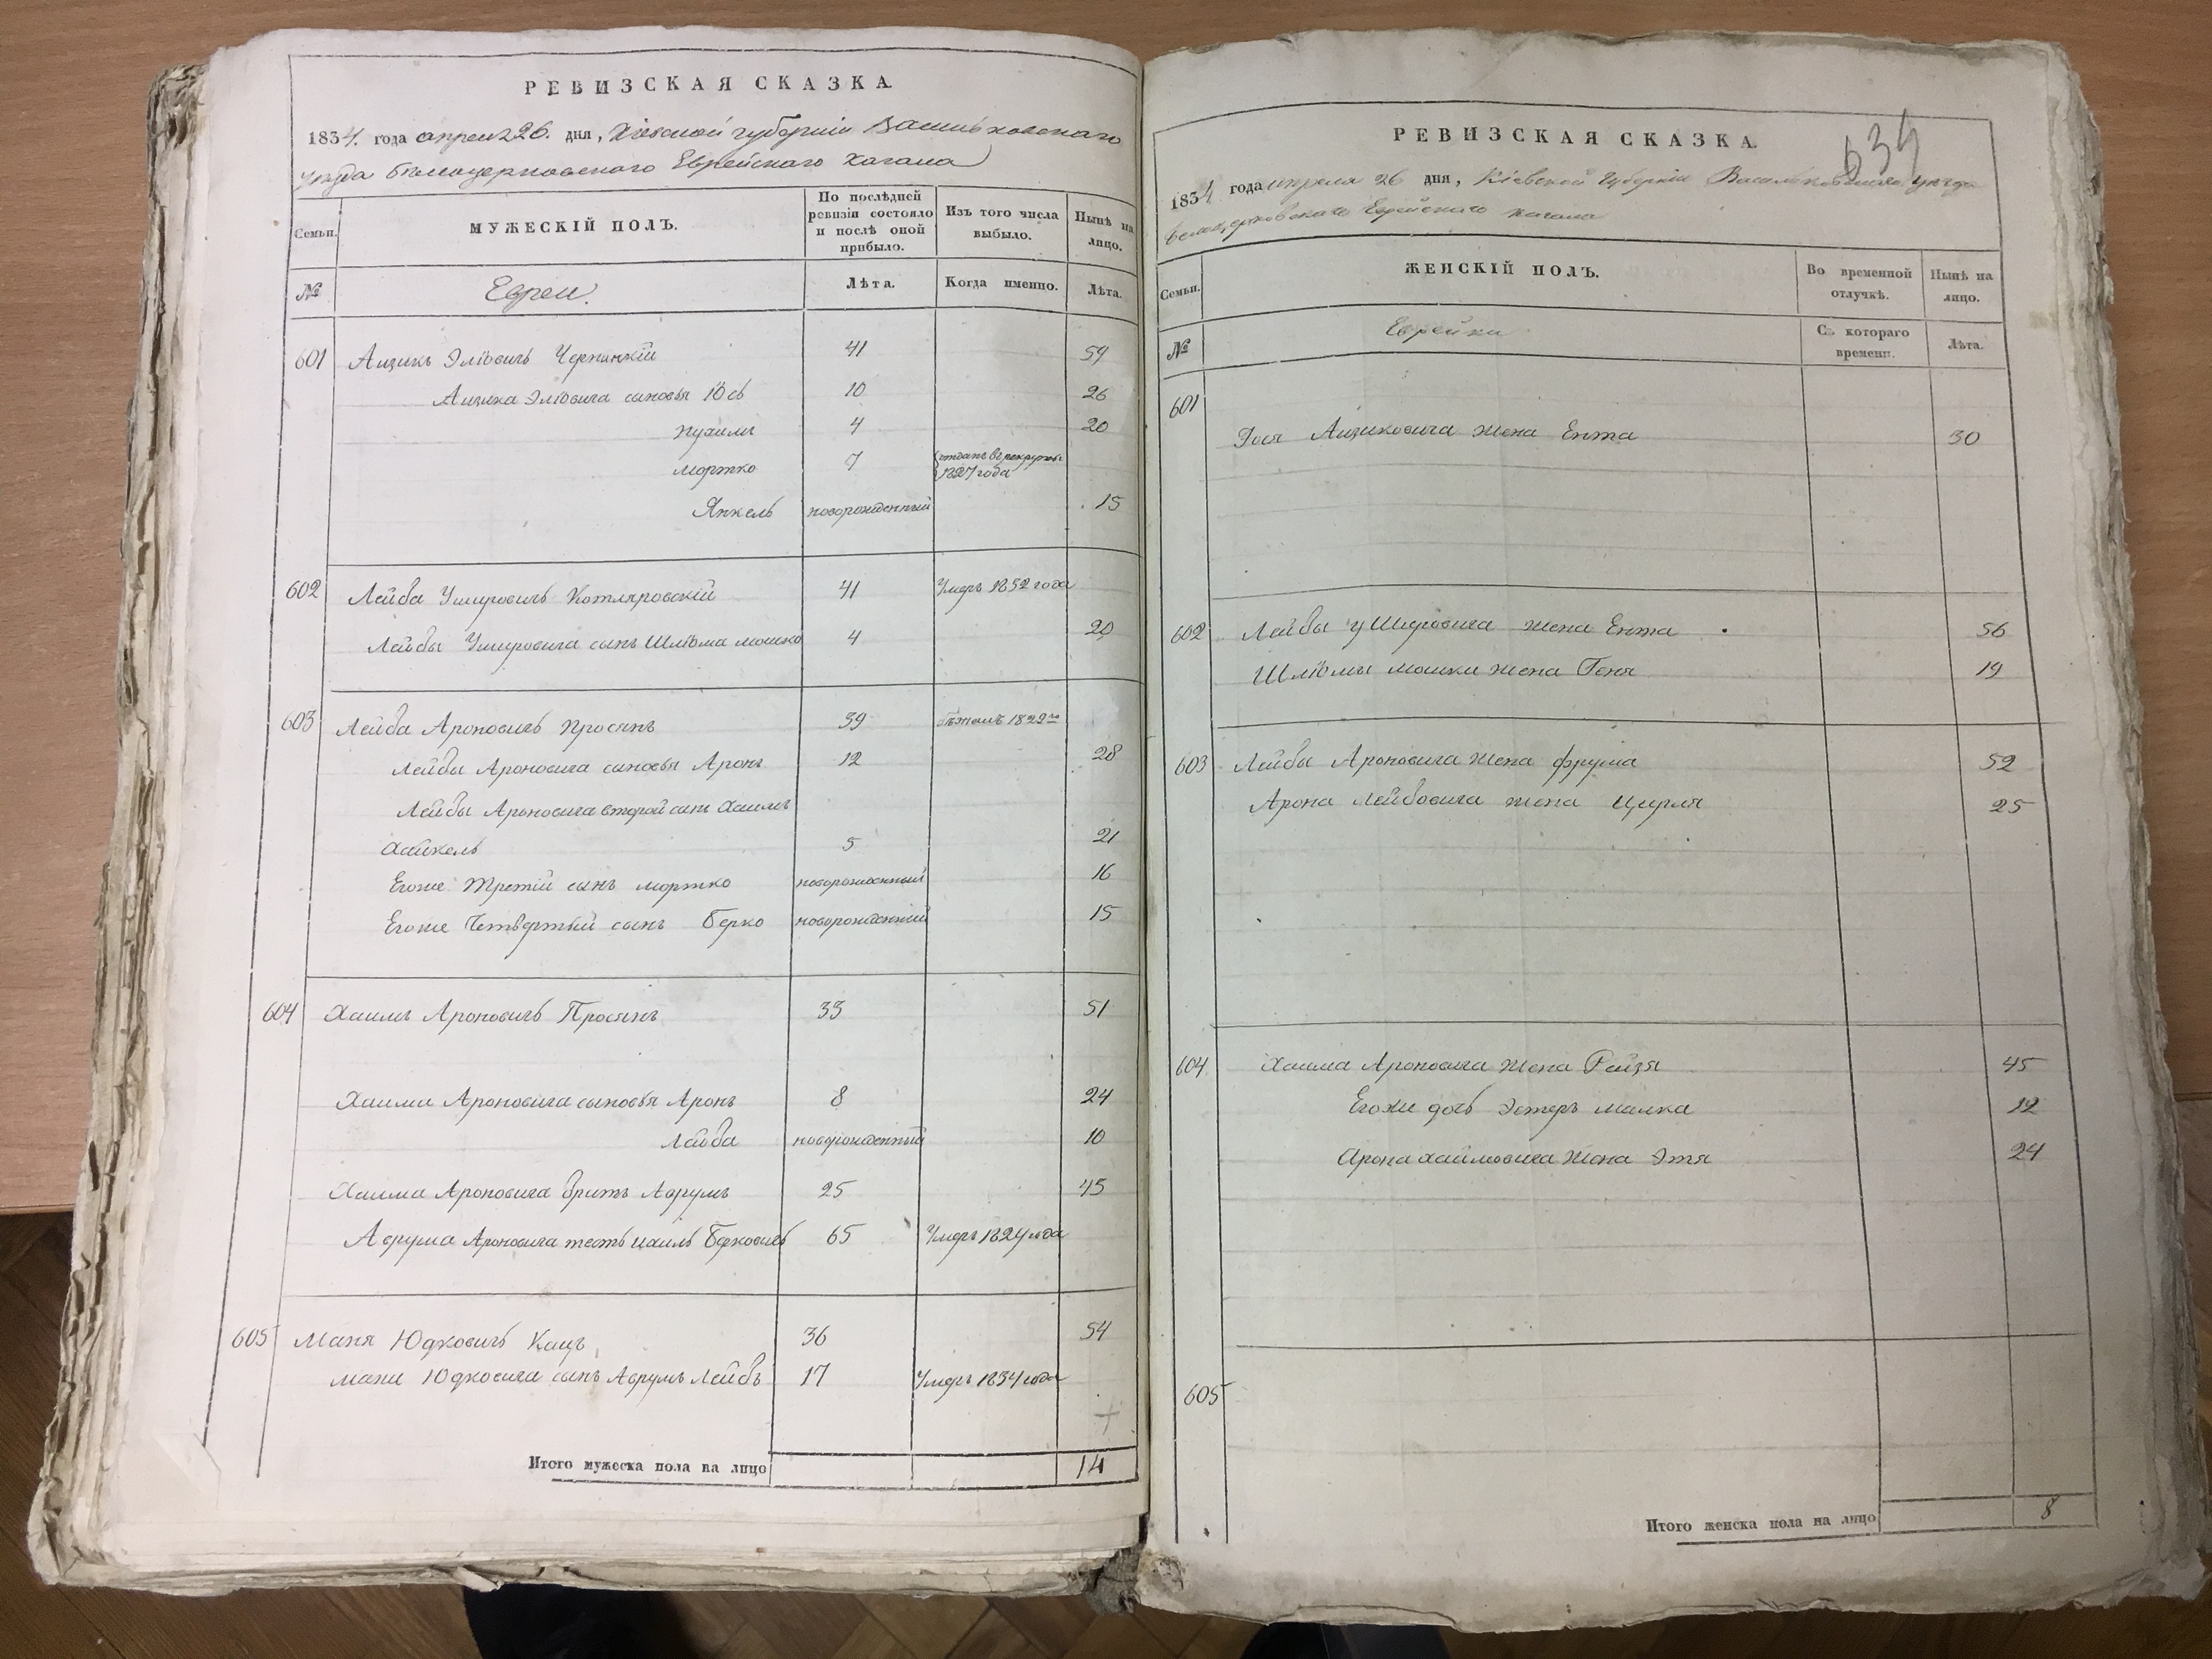 РЕВИЗСКАЯ СКАЗКА
1834. года апреля 26. дня, Кіевской губерніи Васильковскаго
уезда белоцерковского Еврейскаго Кагала
Семьи.
МУЖЕСКІЙ ПОЛЪ.
По послѣдней ревизіи состояло и послѣ оной прибыло.
Изъ того числа выбыло.
Нынѣ на лицо.
№
Евреи.
Лѣта.
Когда именно.
Лѣта.
601 Аицикъ Эліовичъ 41 59
Аицика Эліовича сыновья Іось 10 26
Нухимъ 4 20
Мортко 7 отданъ в рекруты 1827 года
Янкель новорожденный 15
602 Лейба Ушеровичъ Котляровскій 41 Умеръ 1832 года
Лейбы Ушеровича сынъ Шліома мошко 4 20
603 Лейба Ароновичъ Просянъ 39 бѣжалъ 1822го
Лейбы Ароновича сыновья Аронъ 12 28
Лейбы Ароновича второй сынъ Хаимъ
Хайкель 5 21
Егоже Третій сынъ мортко новорожденный 16
Егоже Четвертый сынъ Берко новорожденный 15
604 Хаимъ Ароновичъ Просянъ 33 51
Хаима Ароновича сыновья Аронъ 8 24
Лейба новорожденный 10
Хаима Ароновича братъ Аврумъ 25 45
Аврума Ароновича тесть Берковичъ 65 Умеръ 1824 года
605 Маня Юдковичъ Кацъ 36 54
мани Юдковича сынъ Аврумъ Лейбъ 17 Умеръ 1834 года
Итого мужеска пола на лицо 14
634
РЕВИЗСКАЯ СКАЗКА.
1834 года апреля 26 дня, Кіевской Губерніи Васильковскаго уезда
белоцерковскаго Еврейскаго кагала
Семьи.
ЖЕНСКІЙ ПОЛЪ.
Во временной отлучкѣ.
Нынѣ на лицо.
№
Еврейки
Съ котораго времени.
Лѣта.
601
Аициковича жена Ента 30
602 Лейбы Ушеровича жена Ента 56
Шліомы мошки жена Геня 19
603 Лейбы Ароновича жена фрума 52
Арона Лейбовича жена Цирля 25
604 Хаима Ароновича жена Рейзя 45
Егоже дочь Эстеръ малка 12
Арона хаимовича жена Этя 24
605
Итого женска пола на лицо 8